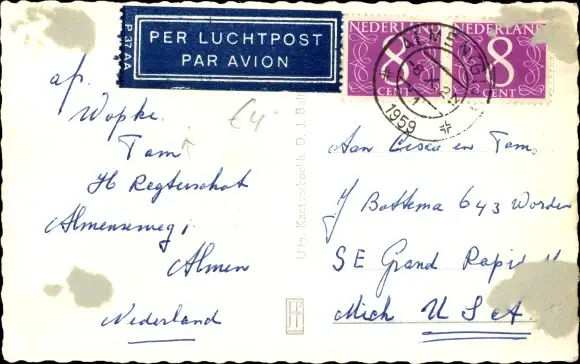 P 37 AA
PER LUCHTPOST
PAR AVION
NEDERLAND
8
CENT
NEDERLAND
8
CENT
ALMEN
1959
af.
Wopke.
Tom
H Regterschot
Almenseweg 1
Almen
Nederland
€4-
Uitg. Kantoorboekh. D. J. B
Aan Cisca en Tom.
J Bottema 643 Worden
SE Grand Rapi
Mich U S A.